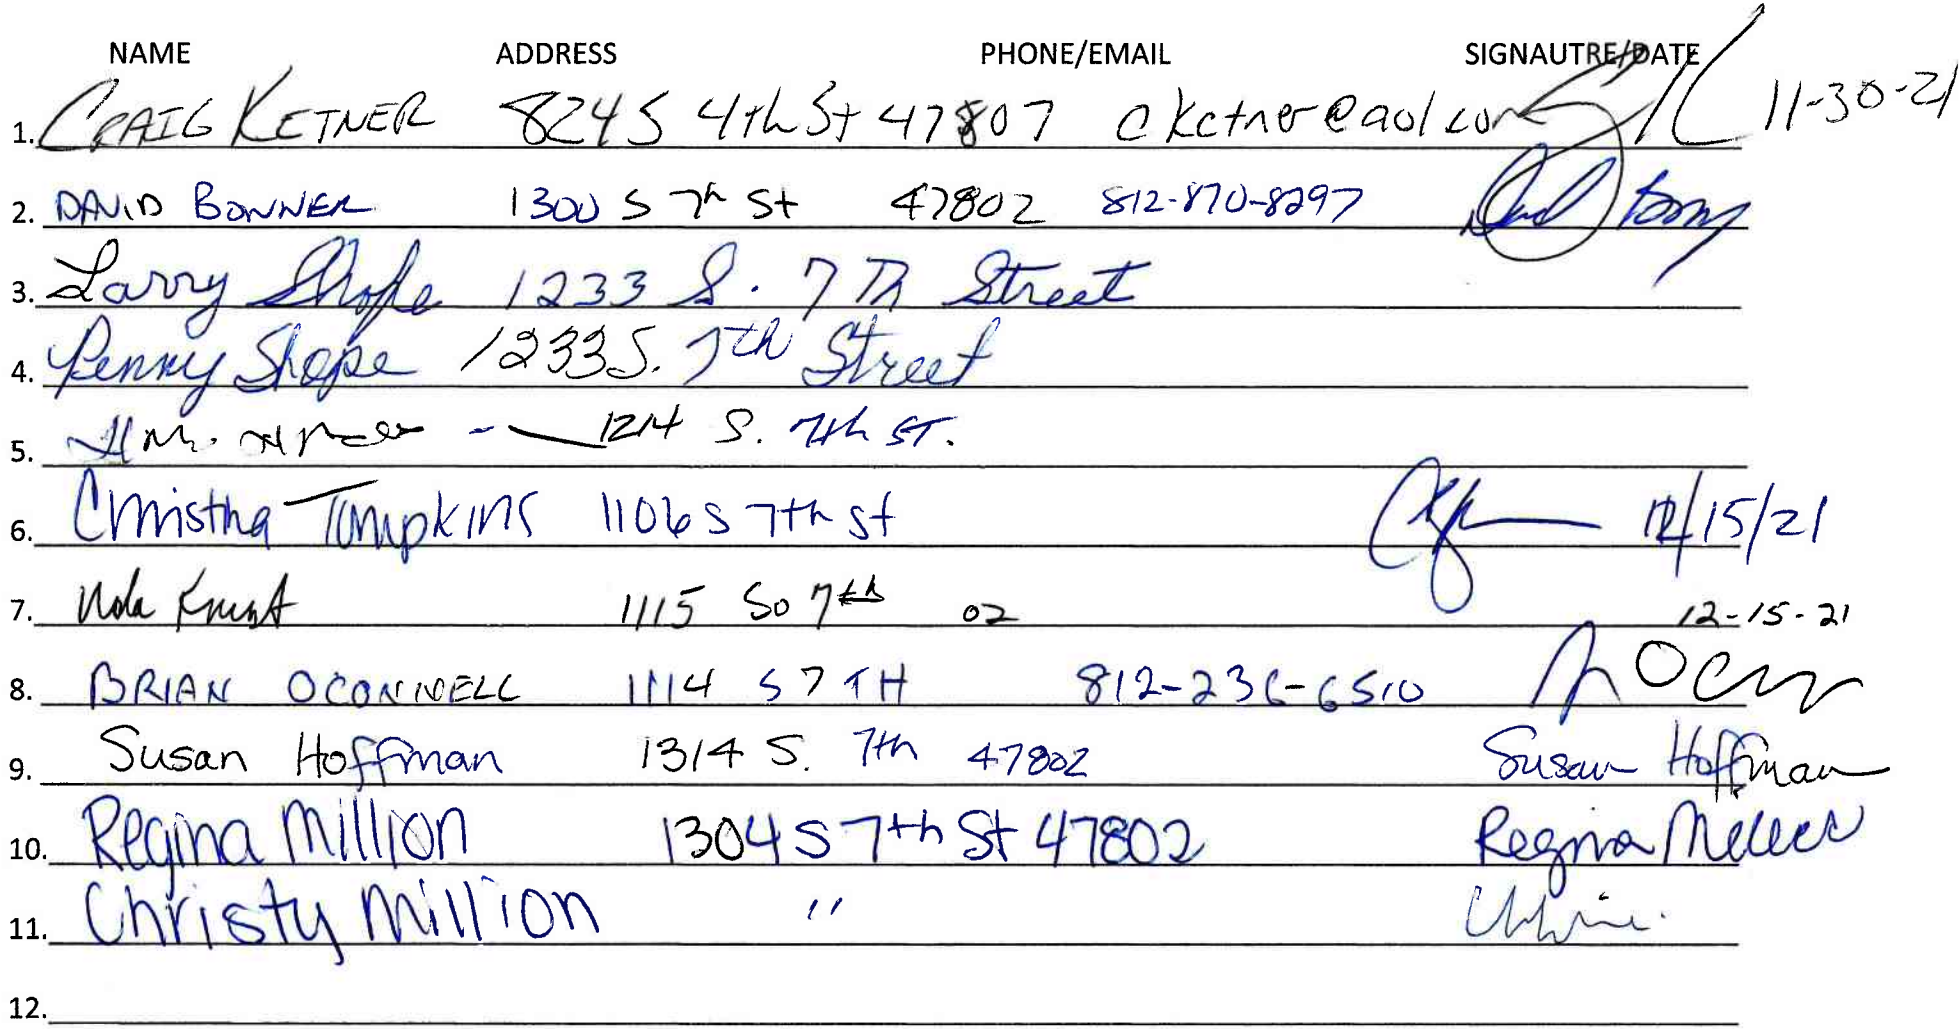 NAME ADDRESS PHONE/EMAIL SIGNAUTRE/DATE
1. CRAIG KETNER 824 S 4th St 47807 cketner@aol.com 11-30-21
2. DAVID BONNER 1300 S 7th St 47802 812-870-8297
3. Larry Shope 1233 S. 7Th Street
4. Penny Shope 1233 S. 7th Street
5. 1214 S. 7th ST.
6. Tompkins 1106 S 7th St 12/15/21
7. Nola 1115 So 7th 02 12-15-21
8. BRIAN OCONNELL 1114 S 7TH 812-236-6510
9. Susan Hoffman 1314 S. 7th 47802 Susan Hoffman
10. Regina Million 1304 S 7th St 47802 Regina
11. Christy Million "
12.